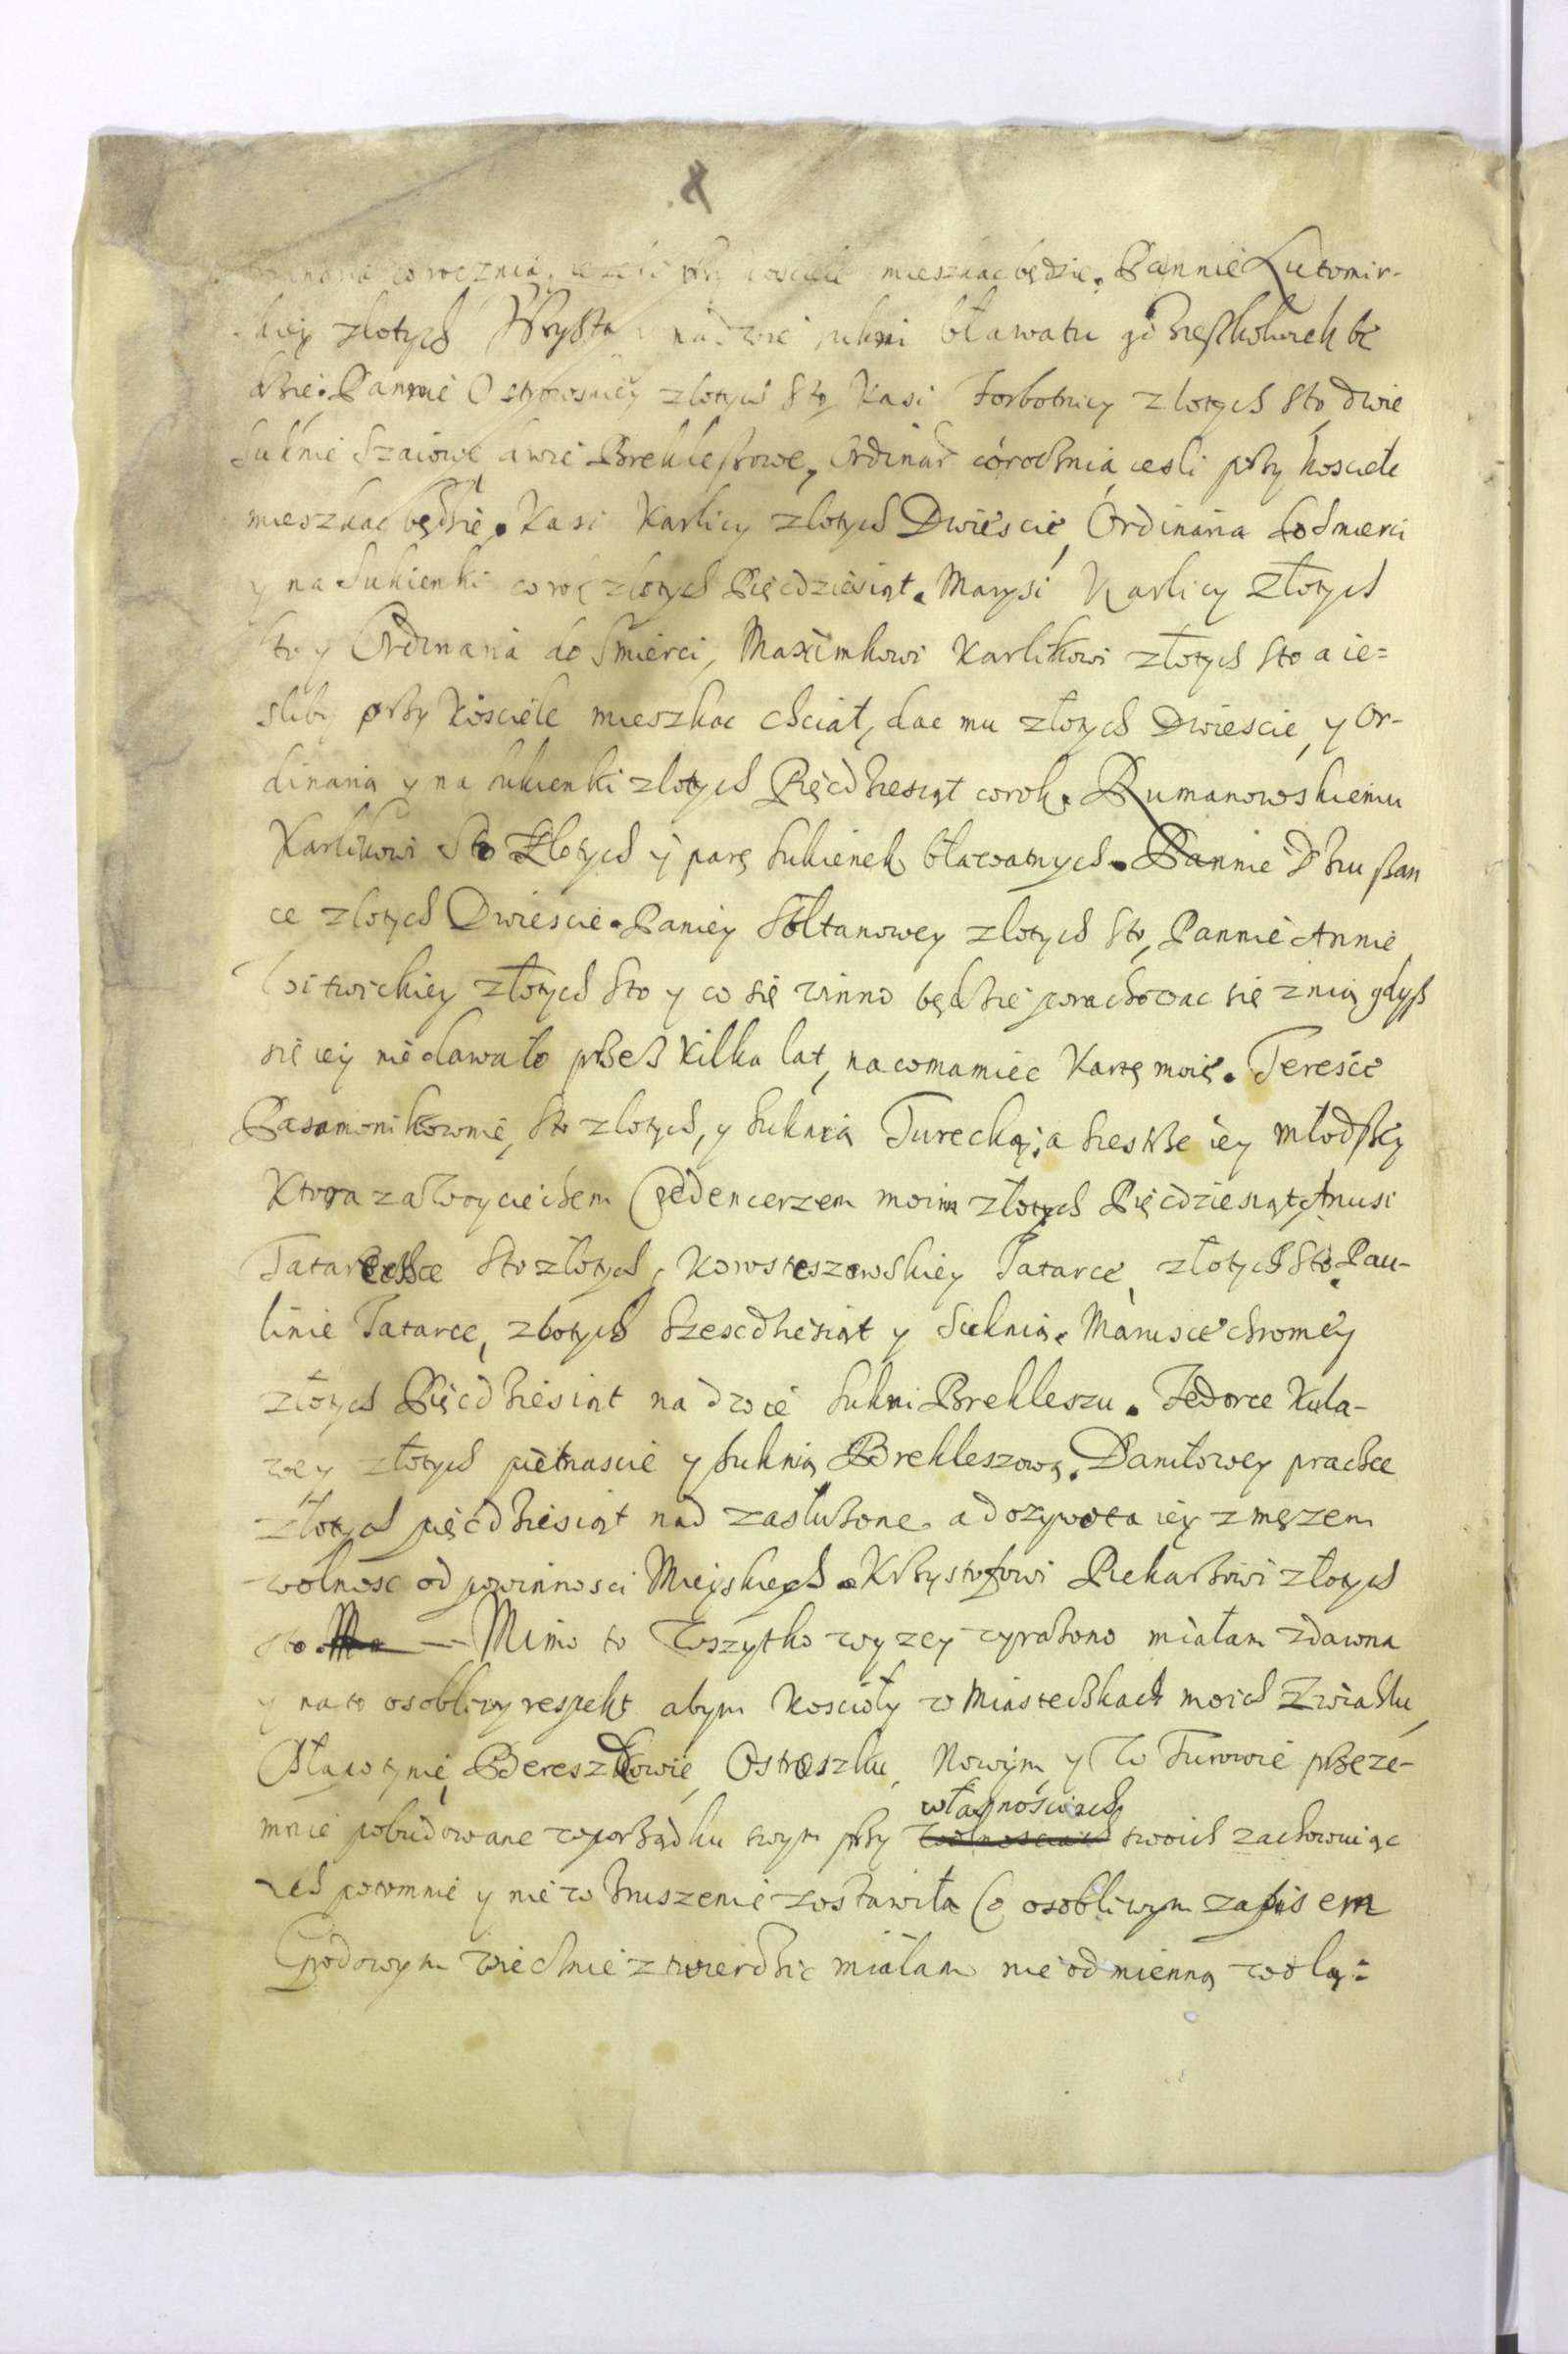 corocznia, iesli przy kosciele mieszkac będzie. Pannie Lutomir-
skiey złotych Trzysta na dwie sukni bławatu gdzieszkolwiek bę
dzie. Pannie Ostrowskiey złotych sto, Kasi Forbotnicy złotych sto, dwie
suknie szaiowe, dwie Brekleszowe, Ordinar corocznia, iesli przy kosciele
mieszkac będzie. Kasi Karlicy złotych Dwiescie, Ordinaria do smierci
y na sukienki co rok złotych Pięcdziesiąt. Marysi Karlicy Złotych
sto y Ordinaria do smierci, Maximkowi Karlikowi złotych sto a ie=
sliby przy Kosciele mieszkac chciał, dac mu złotych Dwiescie, y Or-
dinarią y na sukienki złotych Pięcdziesiąt corok. Rumanowskiemu
Karlikowi sto Złotych y parę sukienek bławatnych. Pannie Dżuszan
ce złotych Dwiescie. Paniey Sołtanowey złotych sto, Pannie Annie
Witwickiey złotych sto y co się winno będzie porachowac się znią gdysz
się iey nie dawało przez kilka lat, na co ma miec Kartę moię. Teresie
Pasamonikownie, sto złotych, y suknia Turecką, a siestrze iey młodszey
Ktora za Woyciechem Credencerzem moim złotych Pięcdziesiąt, Anusi
sto złotych, Kowsteszowskiey Tatarce, złotych sto, Pau-
linie Tatarce, złotych szescdziesiąt y suknia. Marusce chromey
złotych Pięcdziesiąt na dwie sukni Brekleszu. Fedorce Kula-
wey złotych piętnascie y suknią Brekleszową. Daniłowey praczce
złotych pięcdziesiąt nad zasłużone, a do zywota iey z męzem
wolnosc od powinnosci Mieyskiech. Krzysztofowi Piekarzowi złotych
sto — Mimo to wszytko wyzey wyrazono miałam zdawna
y na to osobliwy respekt abym Koscioły w Miasteczkach moich Zwiahlu,
Sławotynie, Berezdowie, Ostroszku, Nowym y w Turowie przeze-
mnie pobudowane w porządku swym przy własnościach swoich zachowuiąc
ich potomnie y nie w zruszenie zostawiła Co osobliwym zapisem
Grodowym wiecznie ztwierdzic miałam nieodmienną wolą: